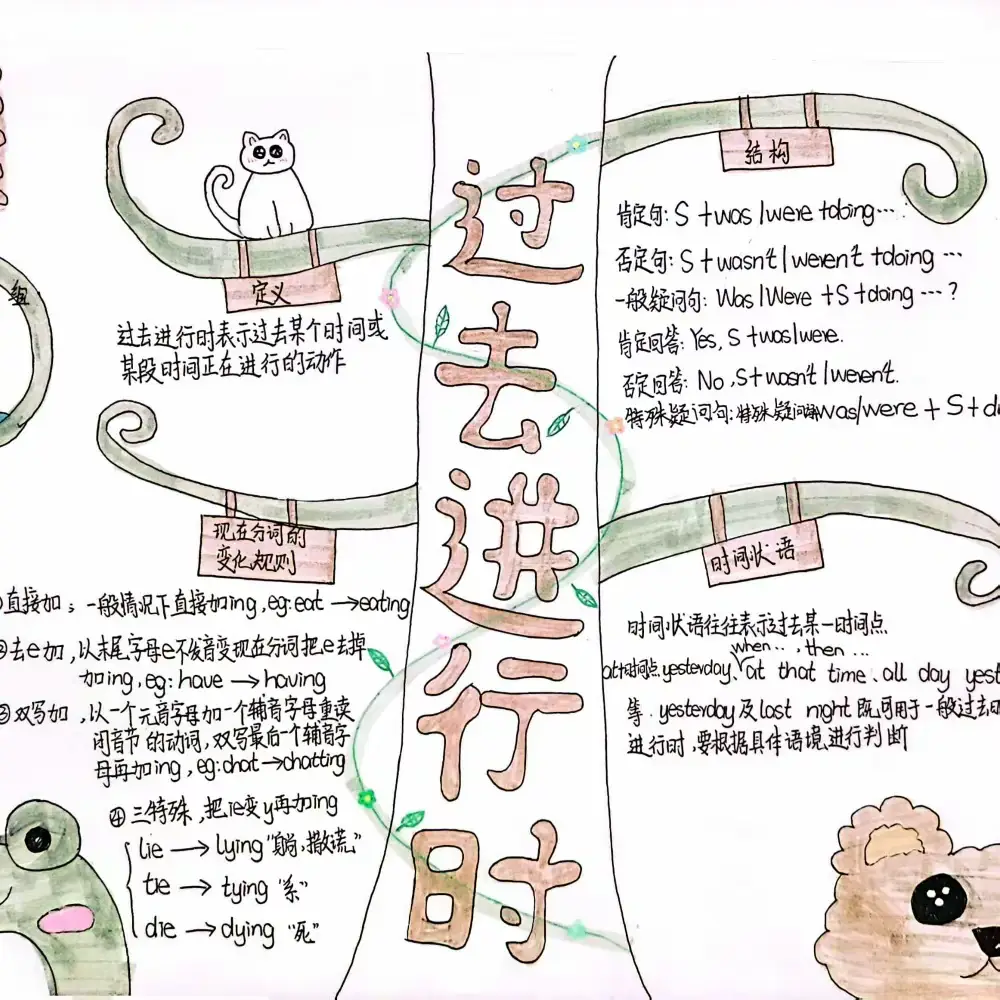 过去进行时
组
定义
过去进行时表示过去某个时间或
某段时间正在进行的动作
现在分词的
变化规则
①直接加：一般情况下直接加ing, eg: eat →eating
②去e加，以末尾字母e不发音变现在分词把e去掉
加ing, eg: have → having
③双写加，以一个元音字母加一个辅音字母重读
闭音节的动词，双写最后一个辅音字
母再加ing, eg: chat →chatting
④三特殊，把ie变y再加ing
lie → lying “躺，撒谎”
tie → tying “系”
die → dying “死”
结构
肯定句: S +was /were +doing…
否定句: S +wasn't / weren't +doing …
一般疑问句: Was /Were +S +doing …?
肯定回答: Yes, S +was/were.
否定回答: No, S+wasn't /weren't.
特殊疑问句: 特殊疑问词was/were + S + do
时间状语
时间状语往往表示过去某一时间点
when …, then …
at+时间点、yesterday、at that time、all day yest
等. yesterday及last night既可用于一般过去时
进行时，要根据具体语境进行判断